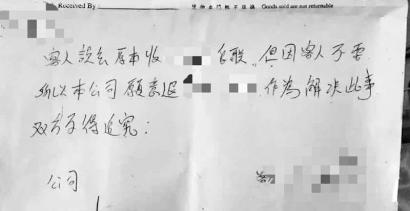 Received By
貨物出門概不退換 Goods sold are not returnable
客人說 原本收 但因客人不要
所以本公司願意退 作為解決此事
双方不得追究：
公司 客